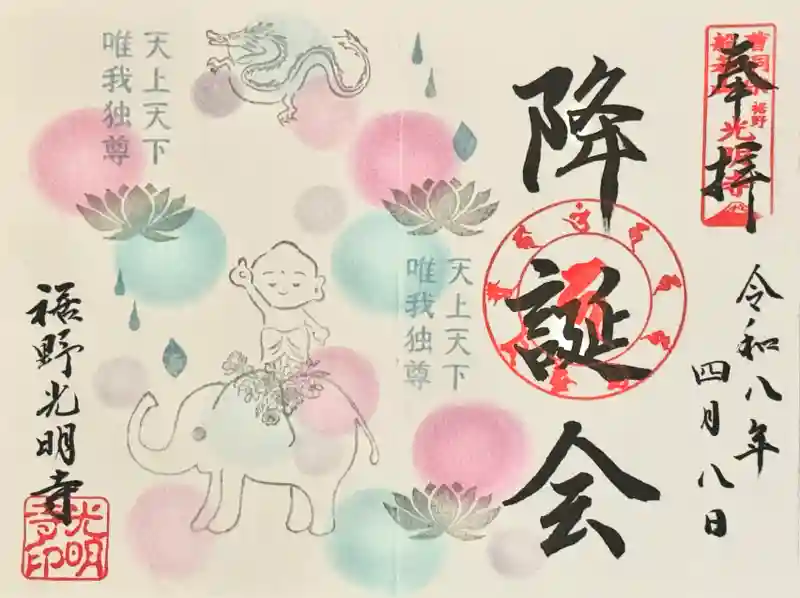 奉拝
曹洞宗
裾野
光明寺
令和八年
四月八日
降誕会
天上天下
唯我独尊
天上天下
唯我独尊
裾野光明寺
光明
寺印